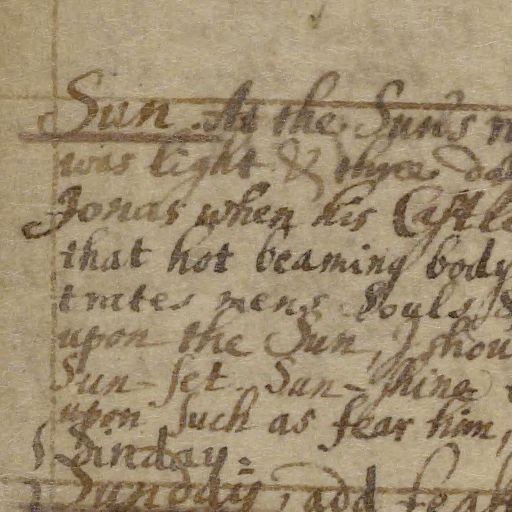 Sun. As the Sun's
was light & three
Jonas when his Castle
that hot beaming body
trates mens Souls &
upon the Sun, I shou
Sun-set. Sun-shine
upon such as fear him,
Sinday.
Sunday, add